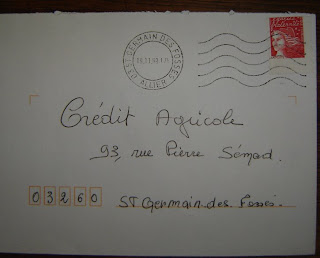 03 ST GERMAIN DES FOSSES
ALLIER
Crédit Agricole
93, rue Pierre Sémad.
03260 ST Germain. des Fossés.